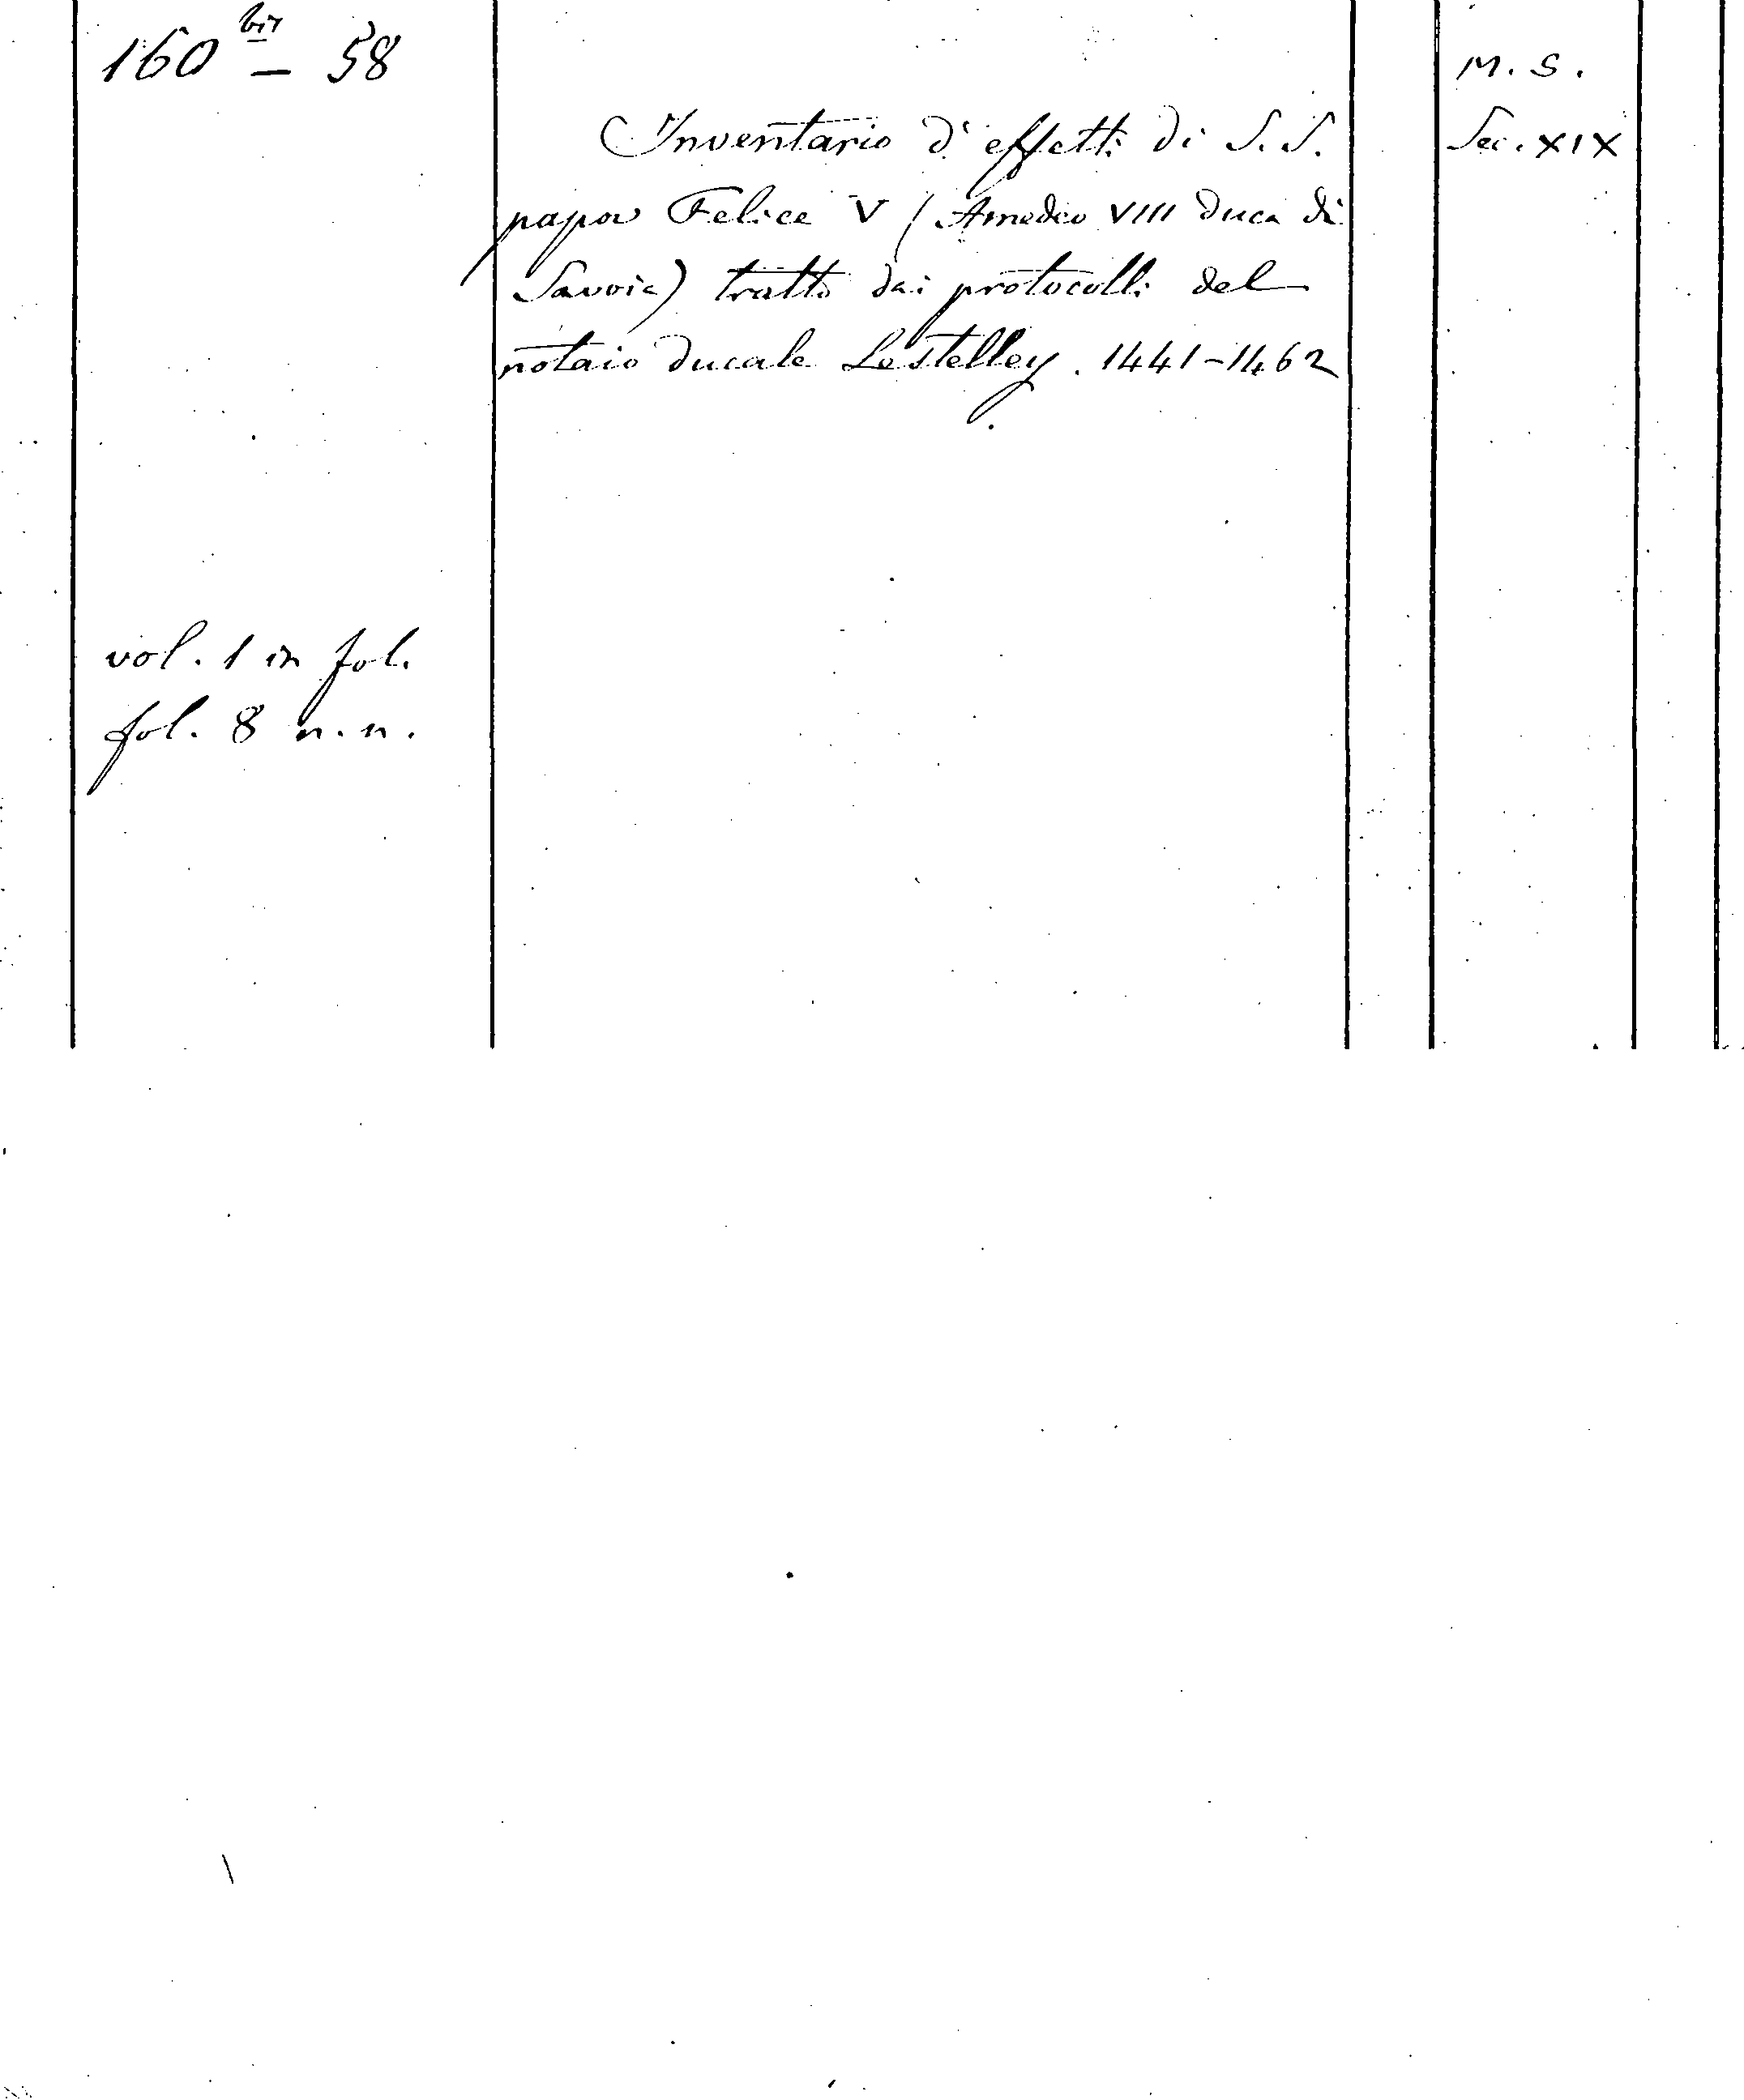 160 bis — 58
vol. 1 in fol.
fol. 8 n.n.
Inventario d'effetti di S.S.
papa Felice V (Amedeo VIII duca di
Savoia) tratto dai protocolli del
notaio ducale Lestelley. 1441-1462
M.S.
Sec. XIX